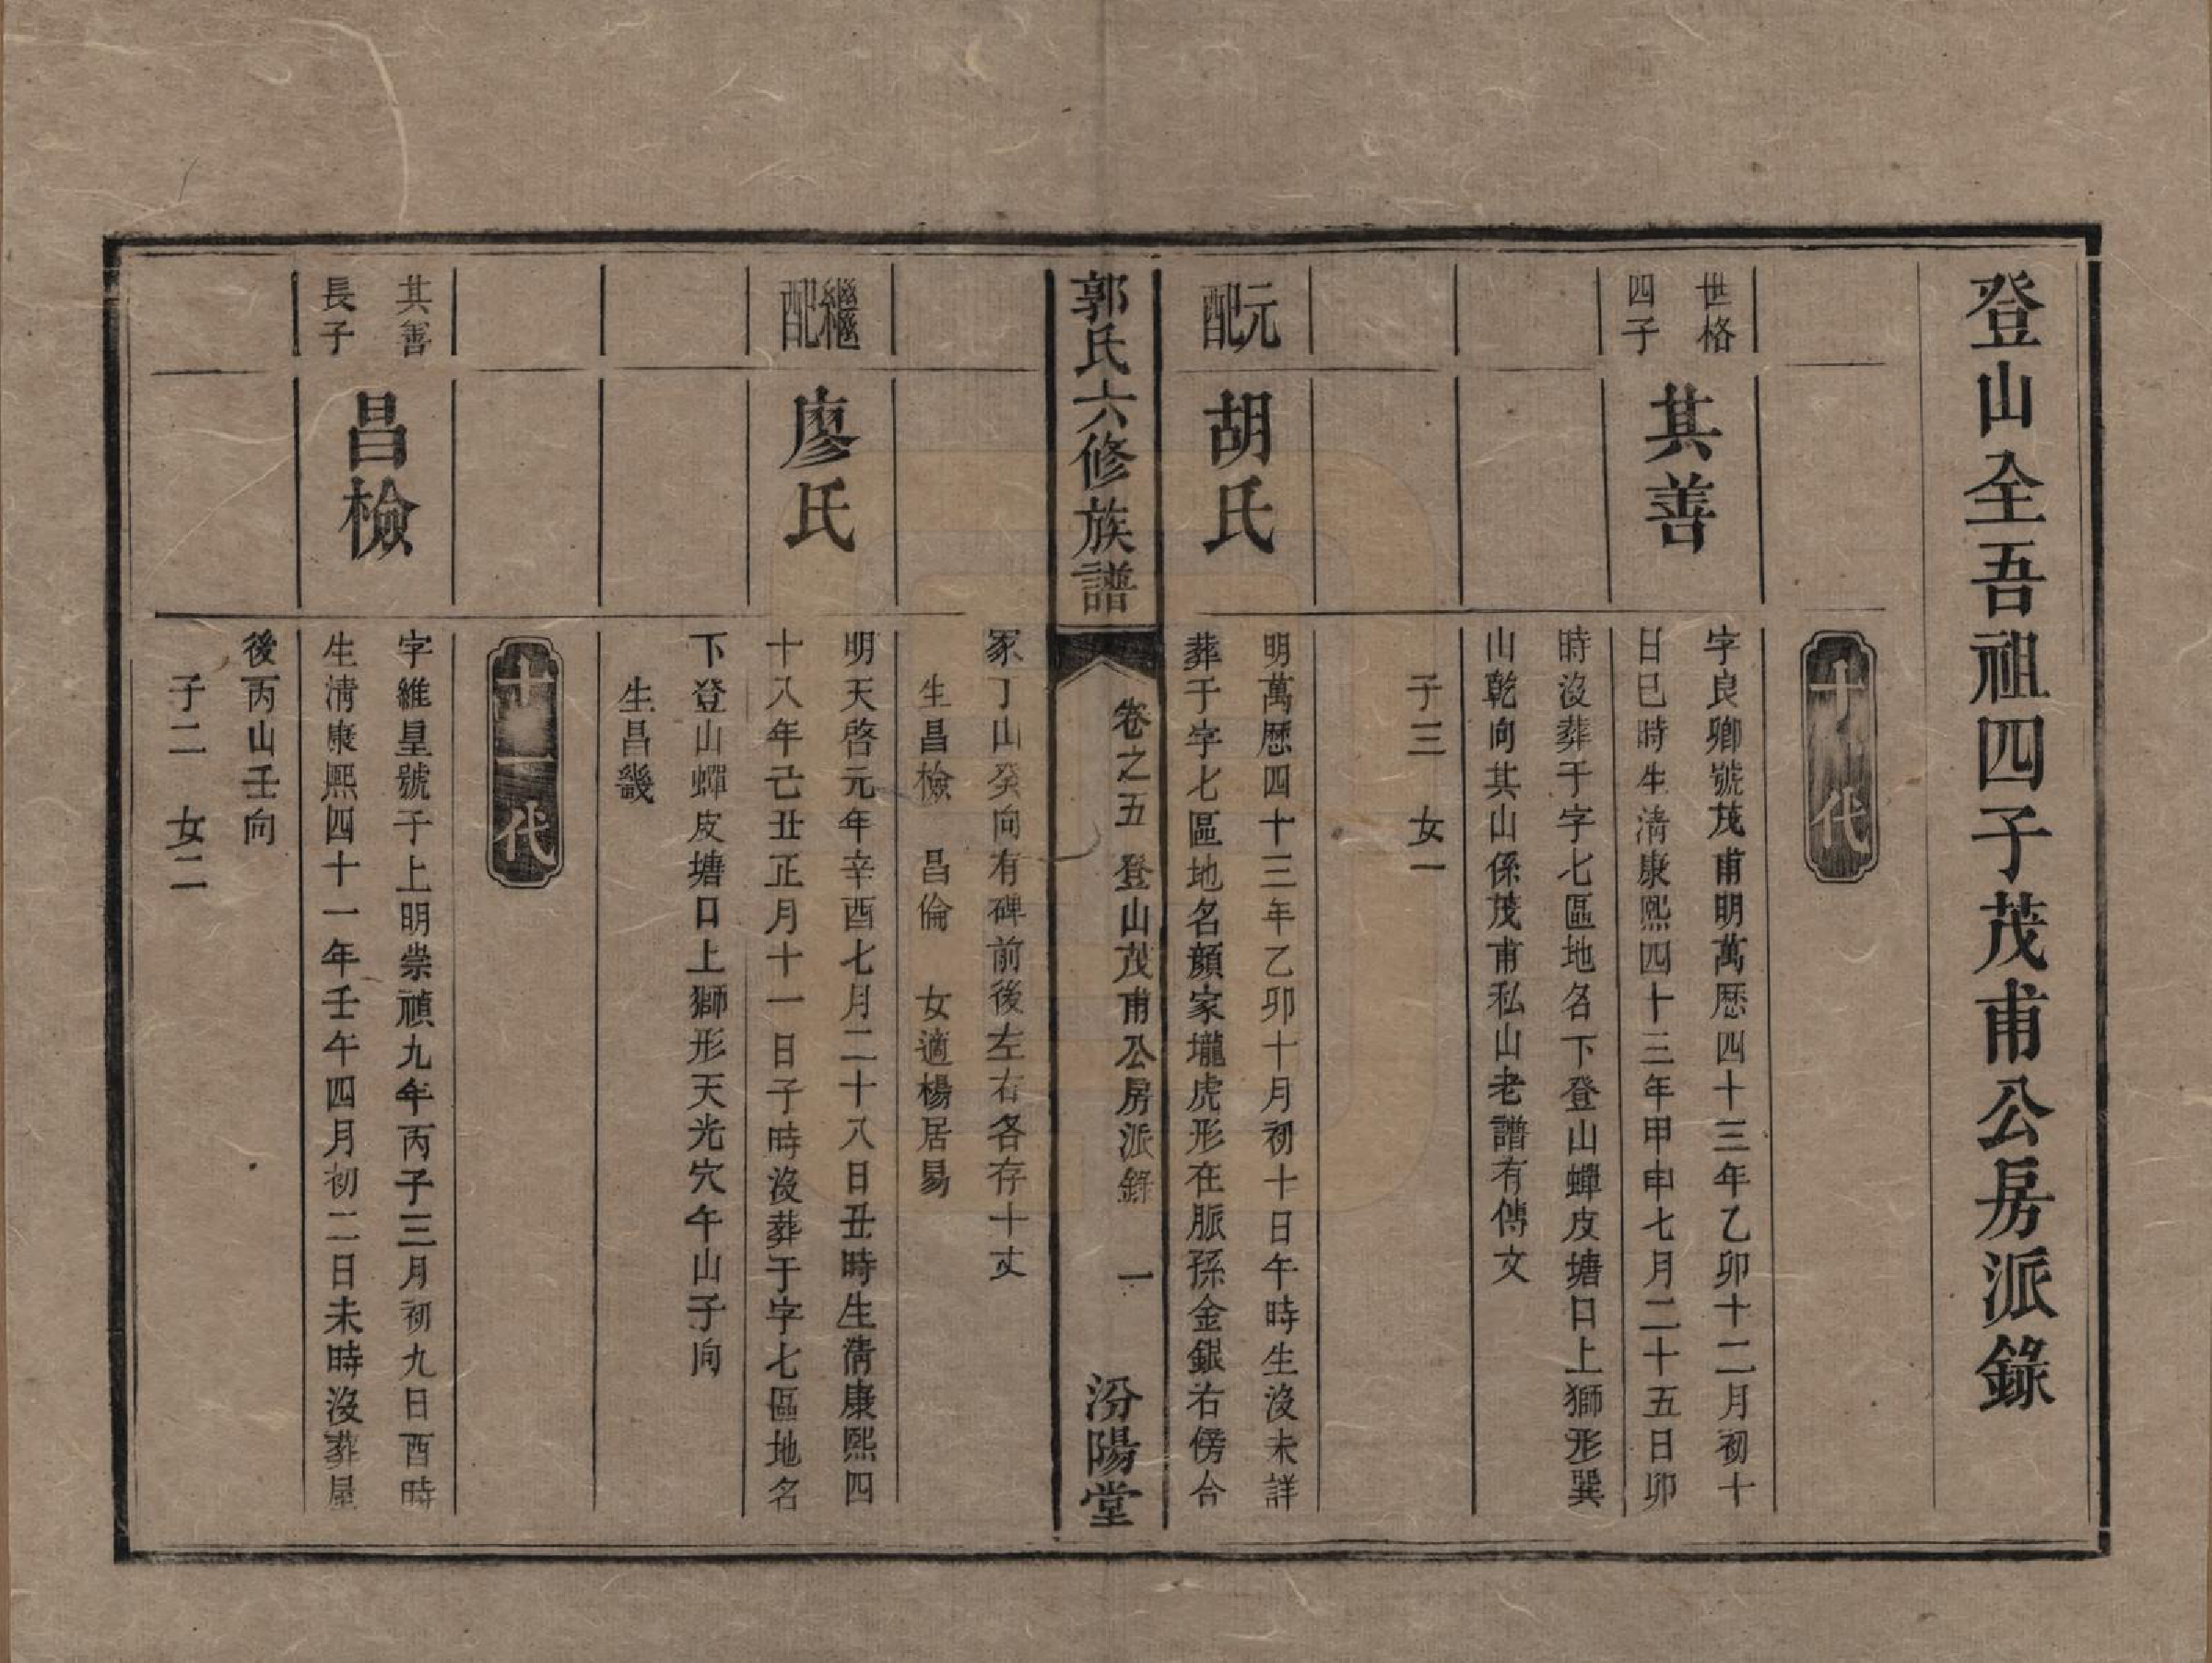 登山全吾祖四子茂甫公房派錄
十代
世格
四子
其善
字良卿號茂甫明萬歷四十三年乙卯十二月初十
日巳時生清康熙四十三年甲申七月二十五日卯
時沒葬于字七區地名下登山蟬皮塘口上獅形巽
山乾向其山係茂甫私山老譜有傳文
子三　女一
元配
胡氏
明萬歷四十三年乙卯十月初十日午時生沒未詳
葬于字七區地名顏家壠虎形在脈孫金銀右傍合
郭氏六修族譜
卷之五　登山茂甫公房派錄　一
汾陽堂
冢丁山癸向有碑前後左右各存十丈
生昌檢　昌倫　女適楊居易
繼配
廖氏
明天啓元年辛酉七月二十八日丑時生清康熙四
十八年己丑正月十一日子時沒葬于字七區地名
下登山蟬皮塘口上獅形天光穴午山子向
生昌畿
十一代
其善
長子
昌檢
字維皇號于上明崇禎九年丙子三月初九日酉時
生清康熙四十一年壬午四月初二日未時沒葬屋
後丙山壬向
子二　女二